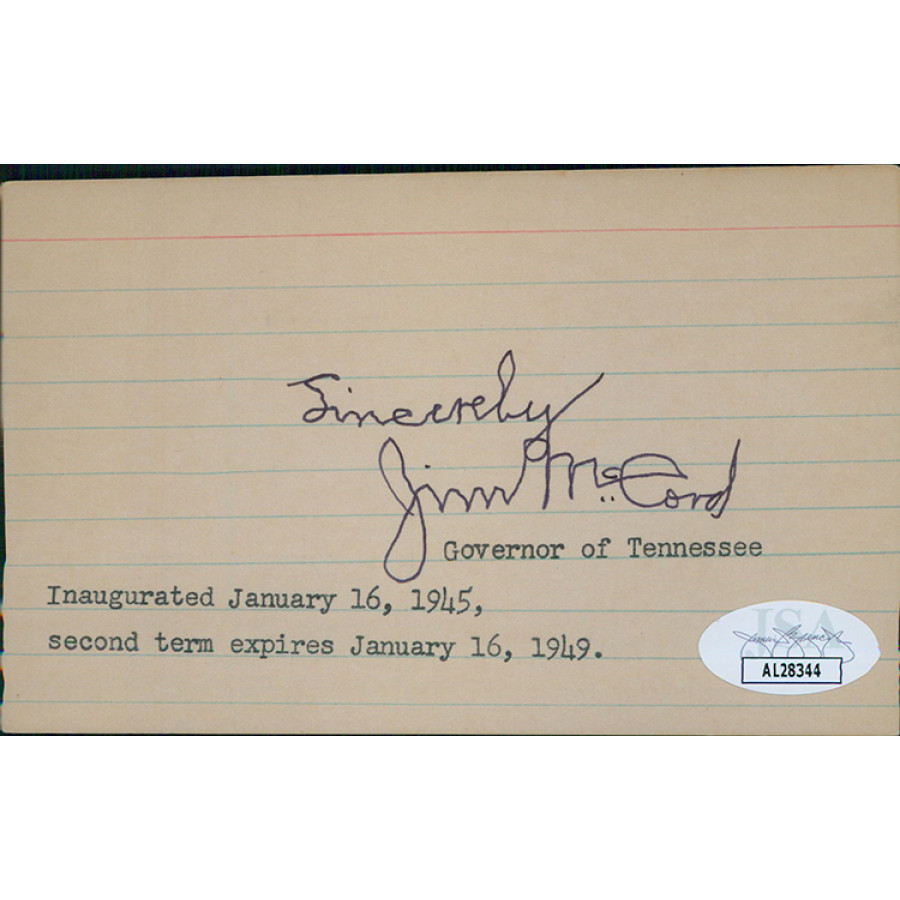 Sincerely
Jim McCord
Governor of Tennessee
Inaugurated January 16, 1945,
second term expires January 16, 1949.
JSA
AL28344